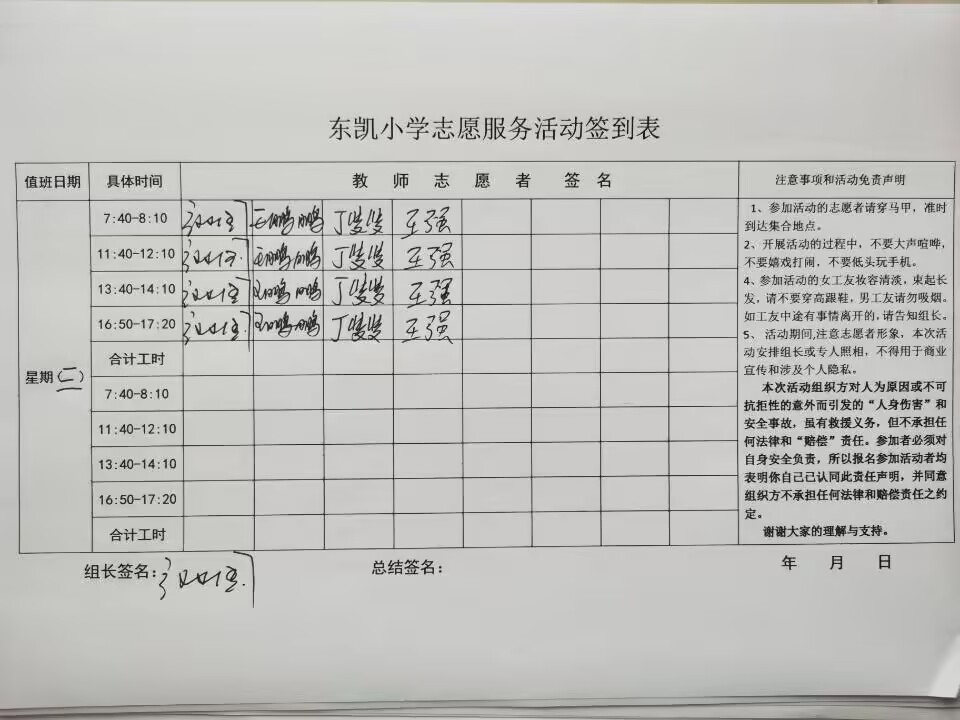 东凯小学志愿服务活动签到表
值班日期 具体时间 教师志愿者签名 注意事项和活动免责声明
星期(二)
7:40-8:10 丁雙雙 王强
11:40-12:10 丁雙雙 王强
13:40-14:10 丁雙雙 王强
16:50-17:20 丁雙雙 王强
合计工时
7:40-8:10
11:40-12:10
13:40-14:10
16:50-17:20
合计工时
1、参加活动的志愿者请穿马甲，准时
到达集合地点。
2、开展活动的过程中，不要大声喧哗，
不要嬉戏打闹，不要低头玩手机。
4、参加活动的女工友妆容清淡，束起长
发，请不要穿高跟鞋，男工友请勿吸烟。
如工友中途有事情离开的，请告知组长。
5、活动期间,注意志愿者形象，本次活
动安排组长或专人照相，不得用于商业
宣传和涉及个人隐私。
本次活动组织方对人为原因或不可
抗拒性的意外而引发的“人身伤害”和
安全事故，虽有救援义务，但不承担任
何法律和“赔偿”责任。参加者必须对
自身安全负责，所以报名参加活动者均
表明你自己已认同此责任声明，并同意
组织方不承担任何法律和赔偿责任之约
定。
谢谢大家的理解与支持。
组长签名： 总结签名： 年 月 日